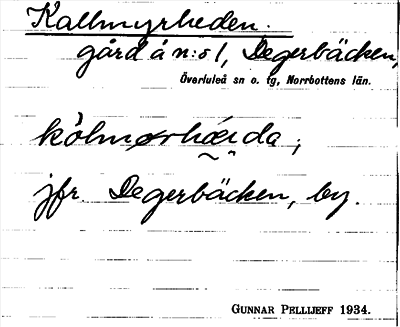 Kallmyrheden.
gård å n:o 1, Degerbäcken,
Överluleå sn o. tg, Norrbottens län.
jfr. Degerbäcken, by.
GUNNAR PELLIJEFF 1934.